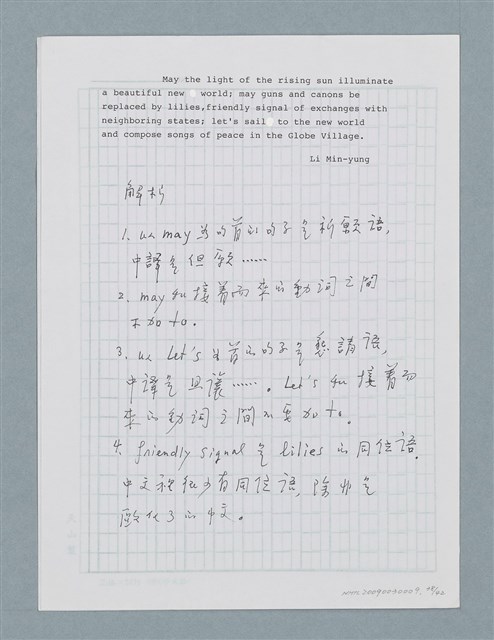 May the light of the rising sun illuminate
a beautiful new world; may guns and canons be
replaced by lilies,friendly signal of exchanges with
neighboring states; let's sail to the new world
and compose songs of peace in the Globe Village.
Li Min-yung
解析
1. 以 may 為句首的句子是祈願語,
中譯是但願……
2. may 和接着而來的動詞之間
不加 to.
3. 以 Let's 為首的句子是懇請語,
中譯是且讓……。Let's 和接着而
來的動詞之間不要加 to.
4. friendly signal 是 lilies 的同位語.
中文裡很少有同位語, 除非是
歐化了的中文。